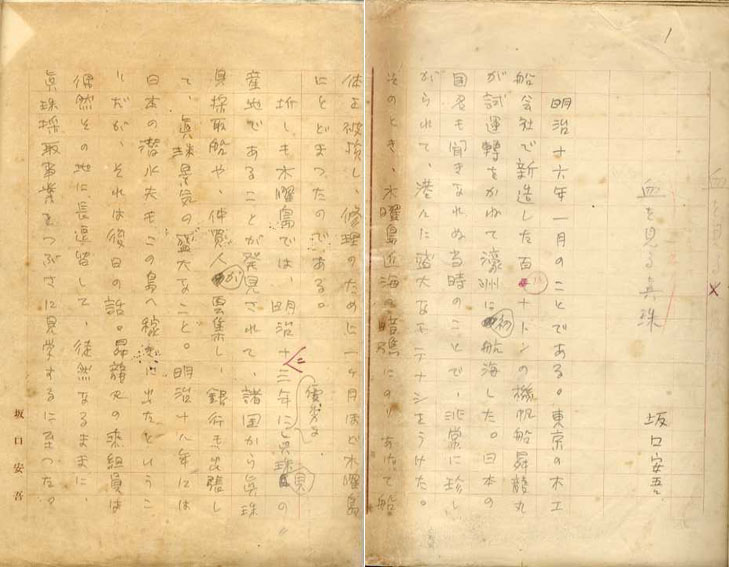 1
血を見る真珠
坂口安吾
明治十六年一月のことである。東京の木工
船会社で新造した百 トンの機帆船昇龍丸
が試運轉をかねて濠洲に初航海した。日本の
国名も聞きなれぬ当時のことで、非常に珍し
がられて、港々に盛大なモテナシをうけた。
そのとき、木曜島近海の暗礁にのりあげて船
体を破損し、修理のために一ヶ月ほど木曜島
にとどまつたのである。
折しも木曜島では、明治十二年に優秀な真珠貝の
産地であることが発見されて、諸国から真珠
貝採取船や、仲買人が雲集し、銀行も出張し
て、真珠景気の盛大なこと。明治十九年には
日本の潜水夫もこの島へ稼ぎに出たというこ
とだが、それは後日の話。昇龍丸の乘組員は
偶然その地に長逗留して、徒然なるままに、
真珠採取事業をつぶさに見学するに至つた。
坂口安吾